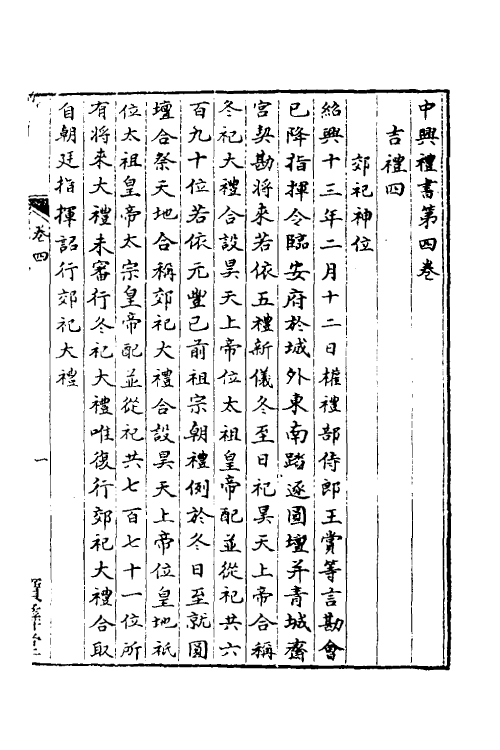 中興禮書第四卷
吉禮四
郊祀神位
紹興十三年二月十二日權禮部侍郎王賞等言勘會
已降指揮令臨安府於城外東南踏逐圓壇并青城齋
宮契勘將來若依五禮新儀冬至日祀昊天上帝合稱
冬祀大禮合設昊天上帝位太祖皇帝配並從祀共六
百九十位若依元豐已前祖宗朝禮例於冬日至就圓
壇合祭天地合稱郊祀大禮合設昊天上帝位皇地祇
位太祖皇帝太宗皇帝配並從祀共七百七十一位所
有將來大禮未審行冬祀大禮唯復行郊祀大禮合取
自朝廷指揮詔行郊祀大禮
卷四
一